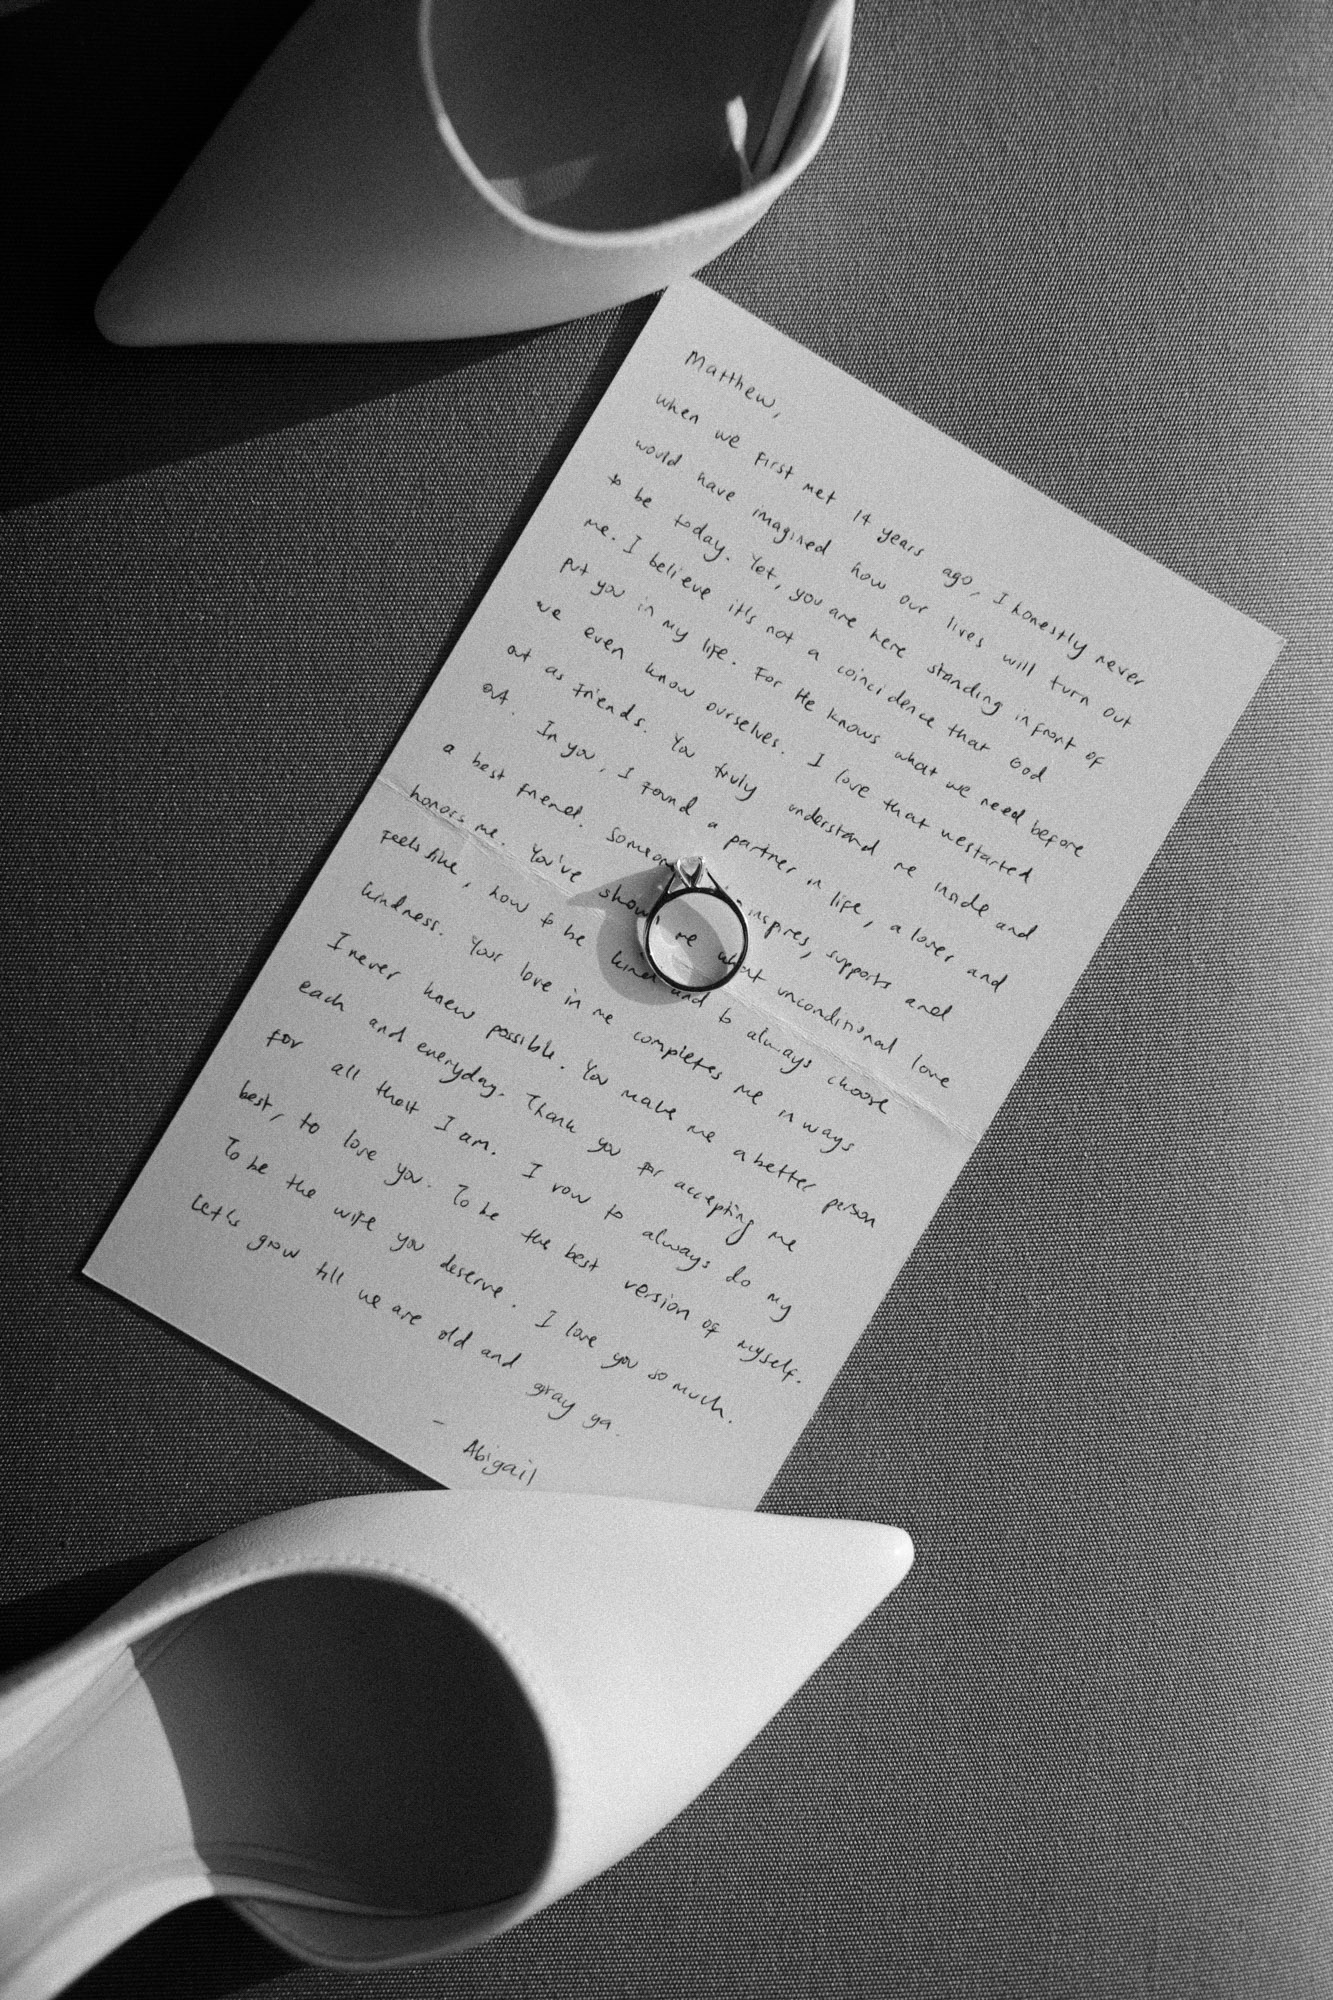 Matthew,
when we first met 14 years ago, I honestly never
would have imagined how our lives will turn out
to be today. Yet, you are here standing infront of
me. I believe it's not a coincidence that God
put you in my life. For He knows what we need before
we even know ourselves. I love that westarted
out as friends. You truly understand me inside and
out. In you, I found a partner in life, a lover and
a best friend. inspires, supports and
honors me. You've shown me what unconditional love
feels like, how to be kind and to always choose
kindness. Your love in me completes me in ways
I never knew possible. You make me a better person
each and everyday. Thank you for accepting me
for all that I am. I vow to always do my
best, to love you. To be the best version of myself.
To be the wife you deserve. I love you so much.
Let's grow till we are old and gray ga.
- Abigail